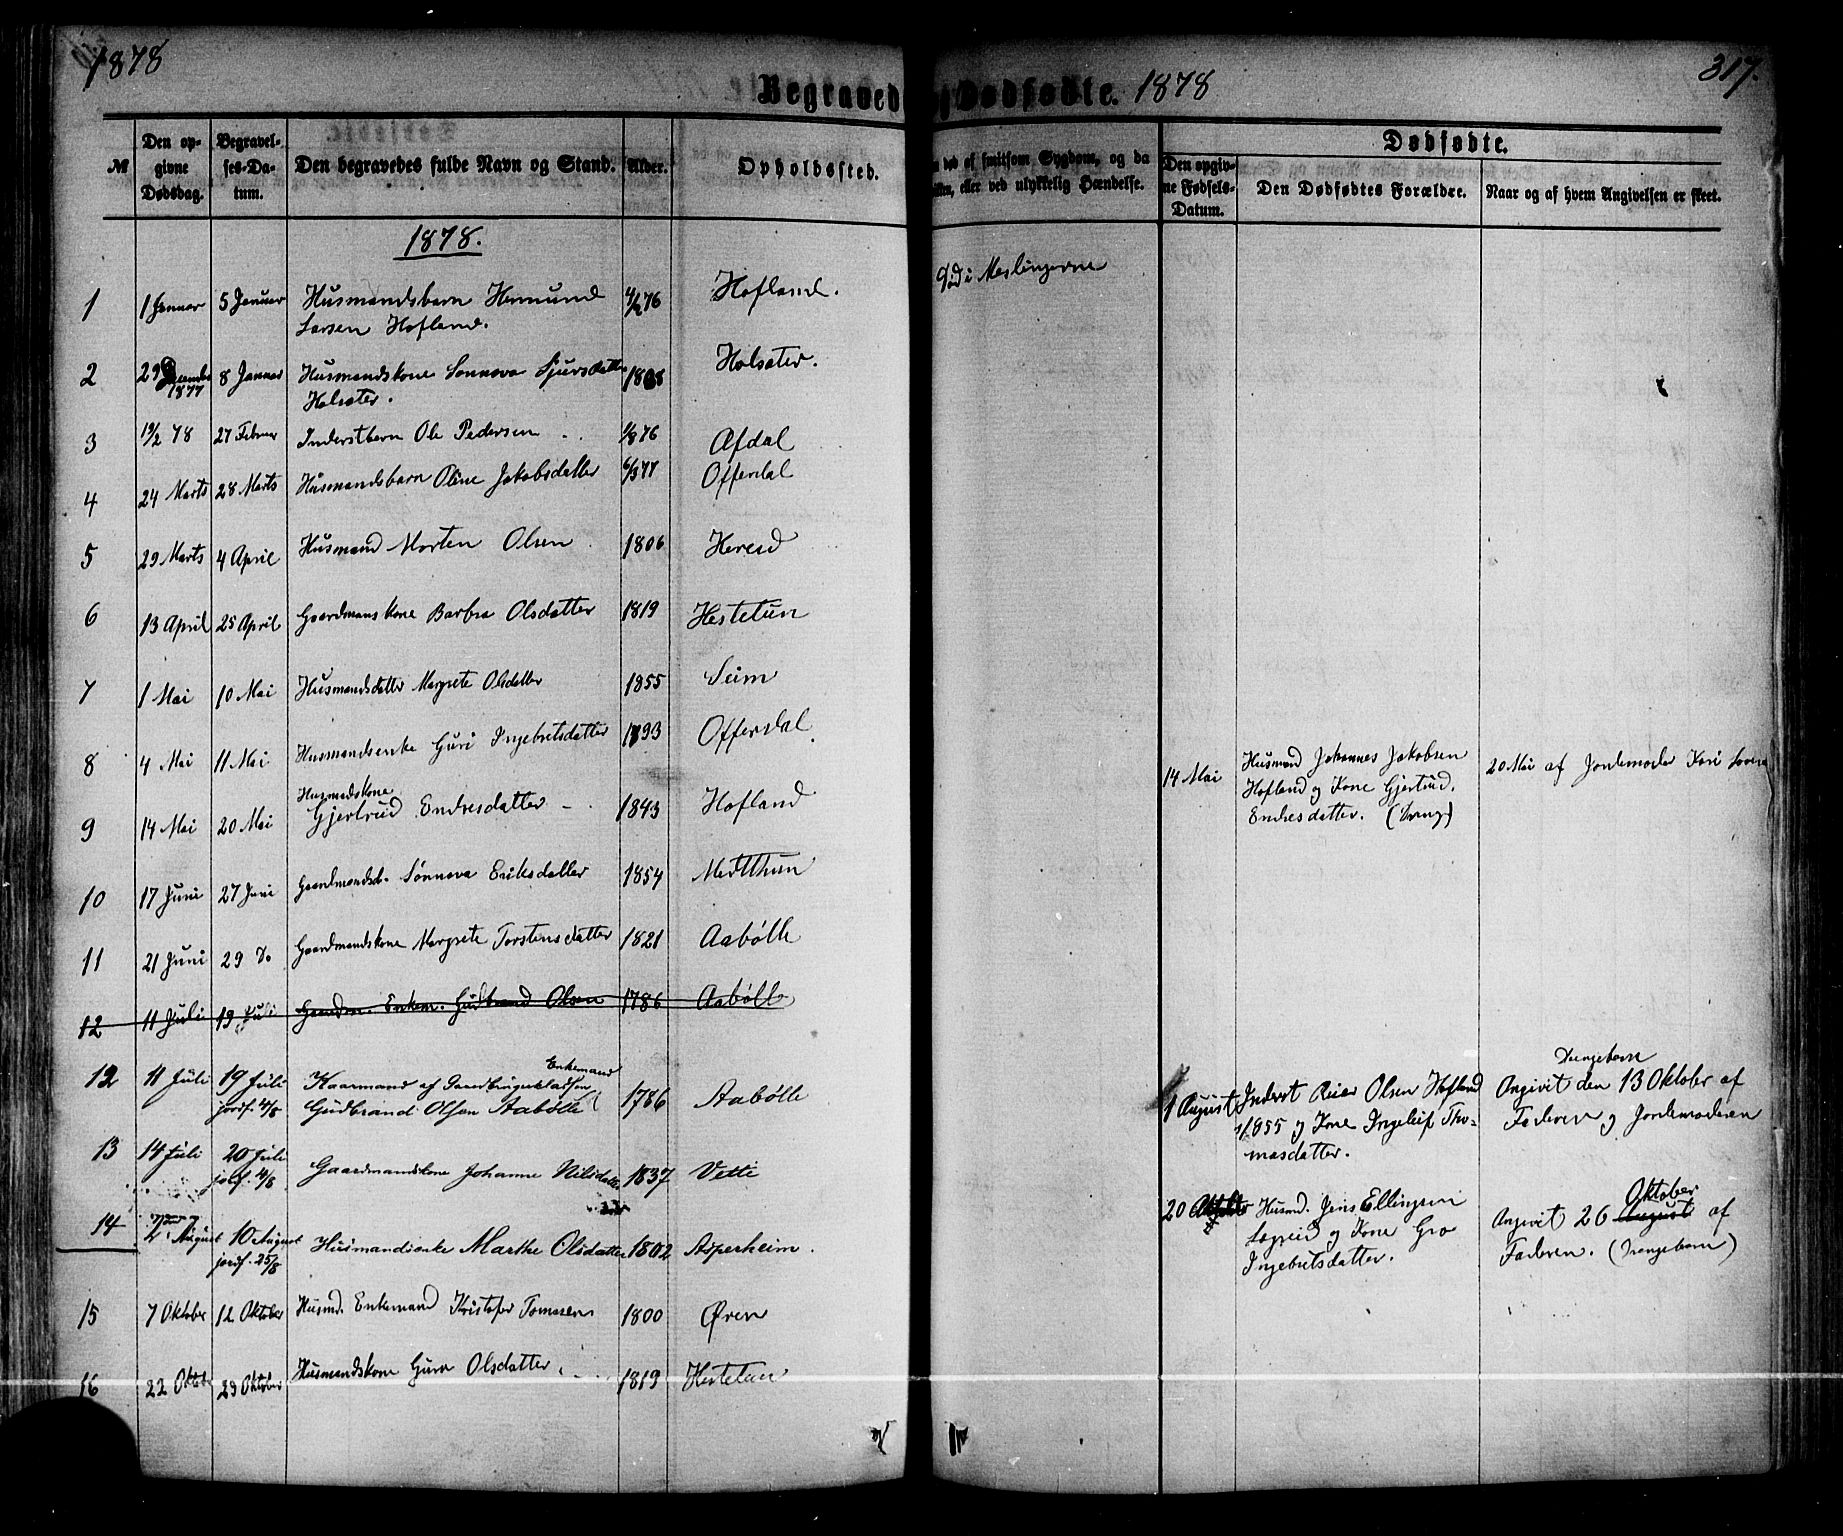 1878
Begravede og Dødfødte. 1878
317.
№
Den opgivne Dødsdag.
Begravelses-Datum.
Den begravedes fulde Navn og Stand.
Alder.
Opholdssted.
død af smitsom Sygdom, og da
eller ved ulykkelig Hændelse.
Dødfødte.
Den opgivne Fødsels-Datum.
Den Dødfødtes Forældre.
Naar og af hvem Angivelsen er skeet.
1878.
1 1 Januar 5 Januar Husmandsbarn Hermund 4/2 76 Hofland. Død i Meslingerne
Larsen Hofland.
2 29 December 1877 8 Januar Husmandskone Sønnøva Sjursdatter 1808 Holsæter.
Holsæter.
3 19/2 78 27 Februar Inderstbarn Ole Pedersen 1/8 76 Afdal
4 24 Marts 28 Marts Husmandsbarn Oline Jakobsdatter 6/3 77 Offerdal
5 29 Marts 4 April Husmand Morten Olsen 1806 Hereid
6 13 April 25 April Gaardmanskone Barbra Olsdatter 1819 Hestetun
7 1 Mai 10 Mai Husmandsdatter Margrete Olsdatter 1855 Seim
8 4 Mai 11 Mai Husmandsenke Guri Ingebritsdatter 1793 Offerdal
9 14 Mai 20 Mai Husmandskone Gjertrud Endresdatter 1843 Hofland
14 Mai Husmand Johannes Jakobsen
Hofland og Kone Gjertrud
Endresdatter. (Dreng)
20 Mai af Jordemoder Kari
10 17 Juni 27 Juni Gaardmandsd. Sønnøva Eriksdatter 1854 Midtthun
11 21 Juni 29 Do Gaardmandskone Margrete Torstensdatter 1821 Aabølle
12 11 Juli 19 Juli Gaardm. Enkem. Gudbrand Olsen 1786 Aabølle
12 11 Juli 19 Juli Kaarmand af Enkemand
jordf. 4/8 Gudbrand Olsen Aabølle 1786 Aabølle
13 14 Juli 20 Juli Gaardmandskone Johanne Nilsdatter 1837 Vetti
jordf. 4/8
14 August 10 August Husmandsenke Marthe Olsdatter 1802 Asperheim.
jordf. 25/8
15 7 Oktober 12 Oktober Husmd. Enkemand Kristofer Tomassen 1800 Øren
16 22 Oktob 29 Oktober Husmandskone Guro Olsdatter 1819 Hestetun
1 August Inderst Reier Olsen Hofland
1855 og Kone Ingeleif Tho-
masdatter.
Drengebarn
Angivet den 13 Oktober af
Faderen og Jordemoderen
20 Husmd. Jens Ellingsen
og Kone Gro
Ingebritsdatter.
Oktober
Angivet 26 August af
Faderen. (Drengebarn)